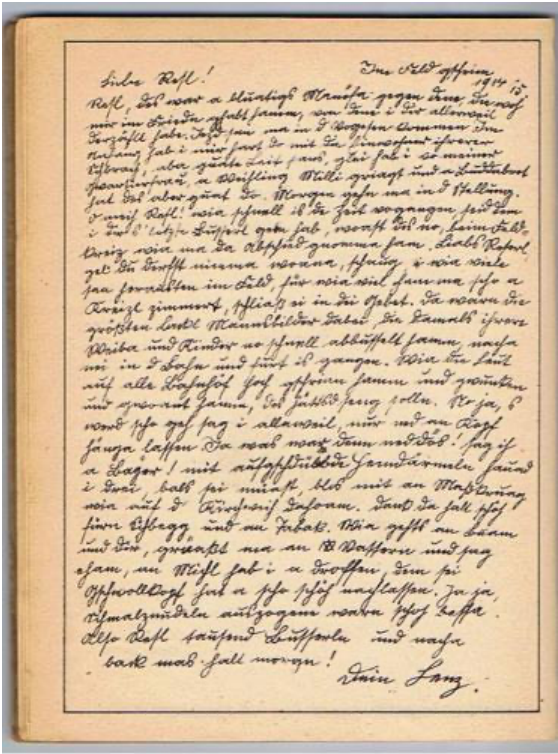 Liebe Resl!
Im Feld gschriem
1914/15
Resl, des war a bluatigs Manöfa gegen dem, des wo
mir im Frieda ghabt hamm, von dem i dir allerweil
derzählt habe. Jezd san ma in d Vogesen kemmen. Im
Anfang hab i mir hart do mit die Einwohner ihrerer
Schbrach, aba guate Leit sans, glei hab i vo meiner
Gwartierfrau, a Weidling Milli griagt und a Buddabrot
hat des aber guat do. Morgen gehn ma in d Stellung.
O meih Resl! wia schnell is de Zeit vogangen, seid dem
i dir s' letzte Busserl gem hab, woast des no, beim Feld-
kreiz wia ma da Abschied gnomma ham. Liabs Reserl
gel du derfst niema woana, schaug i wia viele
san heraussten im Feld, für wia viel ham ma scho a
Kreizl zimmert, schliaß ei in dei Gebet. Da warn die
größten Lackl Mannsbilder dabei, die damals ihrere
Weiba und Kinder no schnell abbusselt hamm, nacha
nei in d Bahn und fürt is ganga. Wia die Leut
auf alle Bahnhöf hoch gschrian hamm und gwunken
und gwoant hamm, des hättst seng solln. No ja, s
werd scho geh sag i allaweil, nur ned an Kopf
hänga lassen Ja was war denn ned dös! sag ih
a Bayer! mit aufgschdülbde Hemdärmeln hauad
i drei, bals sei müaßt, blos mit an Maßkruag
wia auf d Kirchweih dahoam. Dank da halt schö
fürn Schbegg und an Tabak. Wia gehts an Buam
und dir, grüaßt ma an Vattern und sag
eham, an Michl hab i a droffen, dem sei
Gschwollkopf hat a scho schöh nachlassen. Ja ja,
Schmalznudeln auszogene warn schoh bessa.
Also Resl tausend Busserln und nacha
back mas halt morgn!
Dein Lenz.